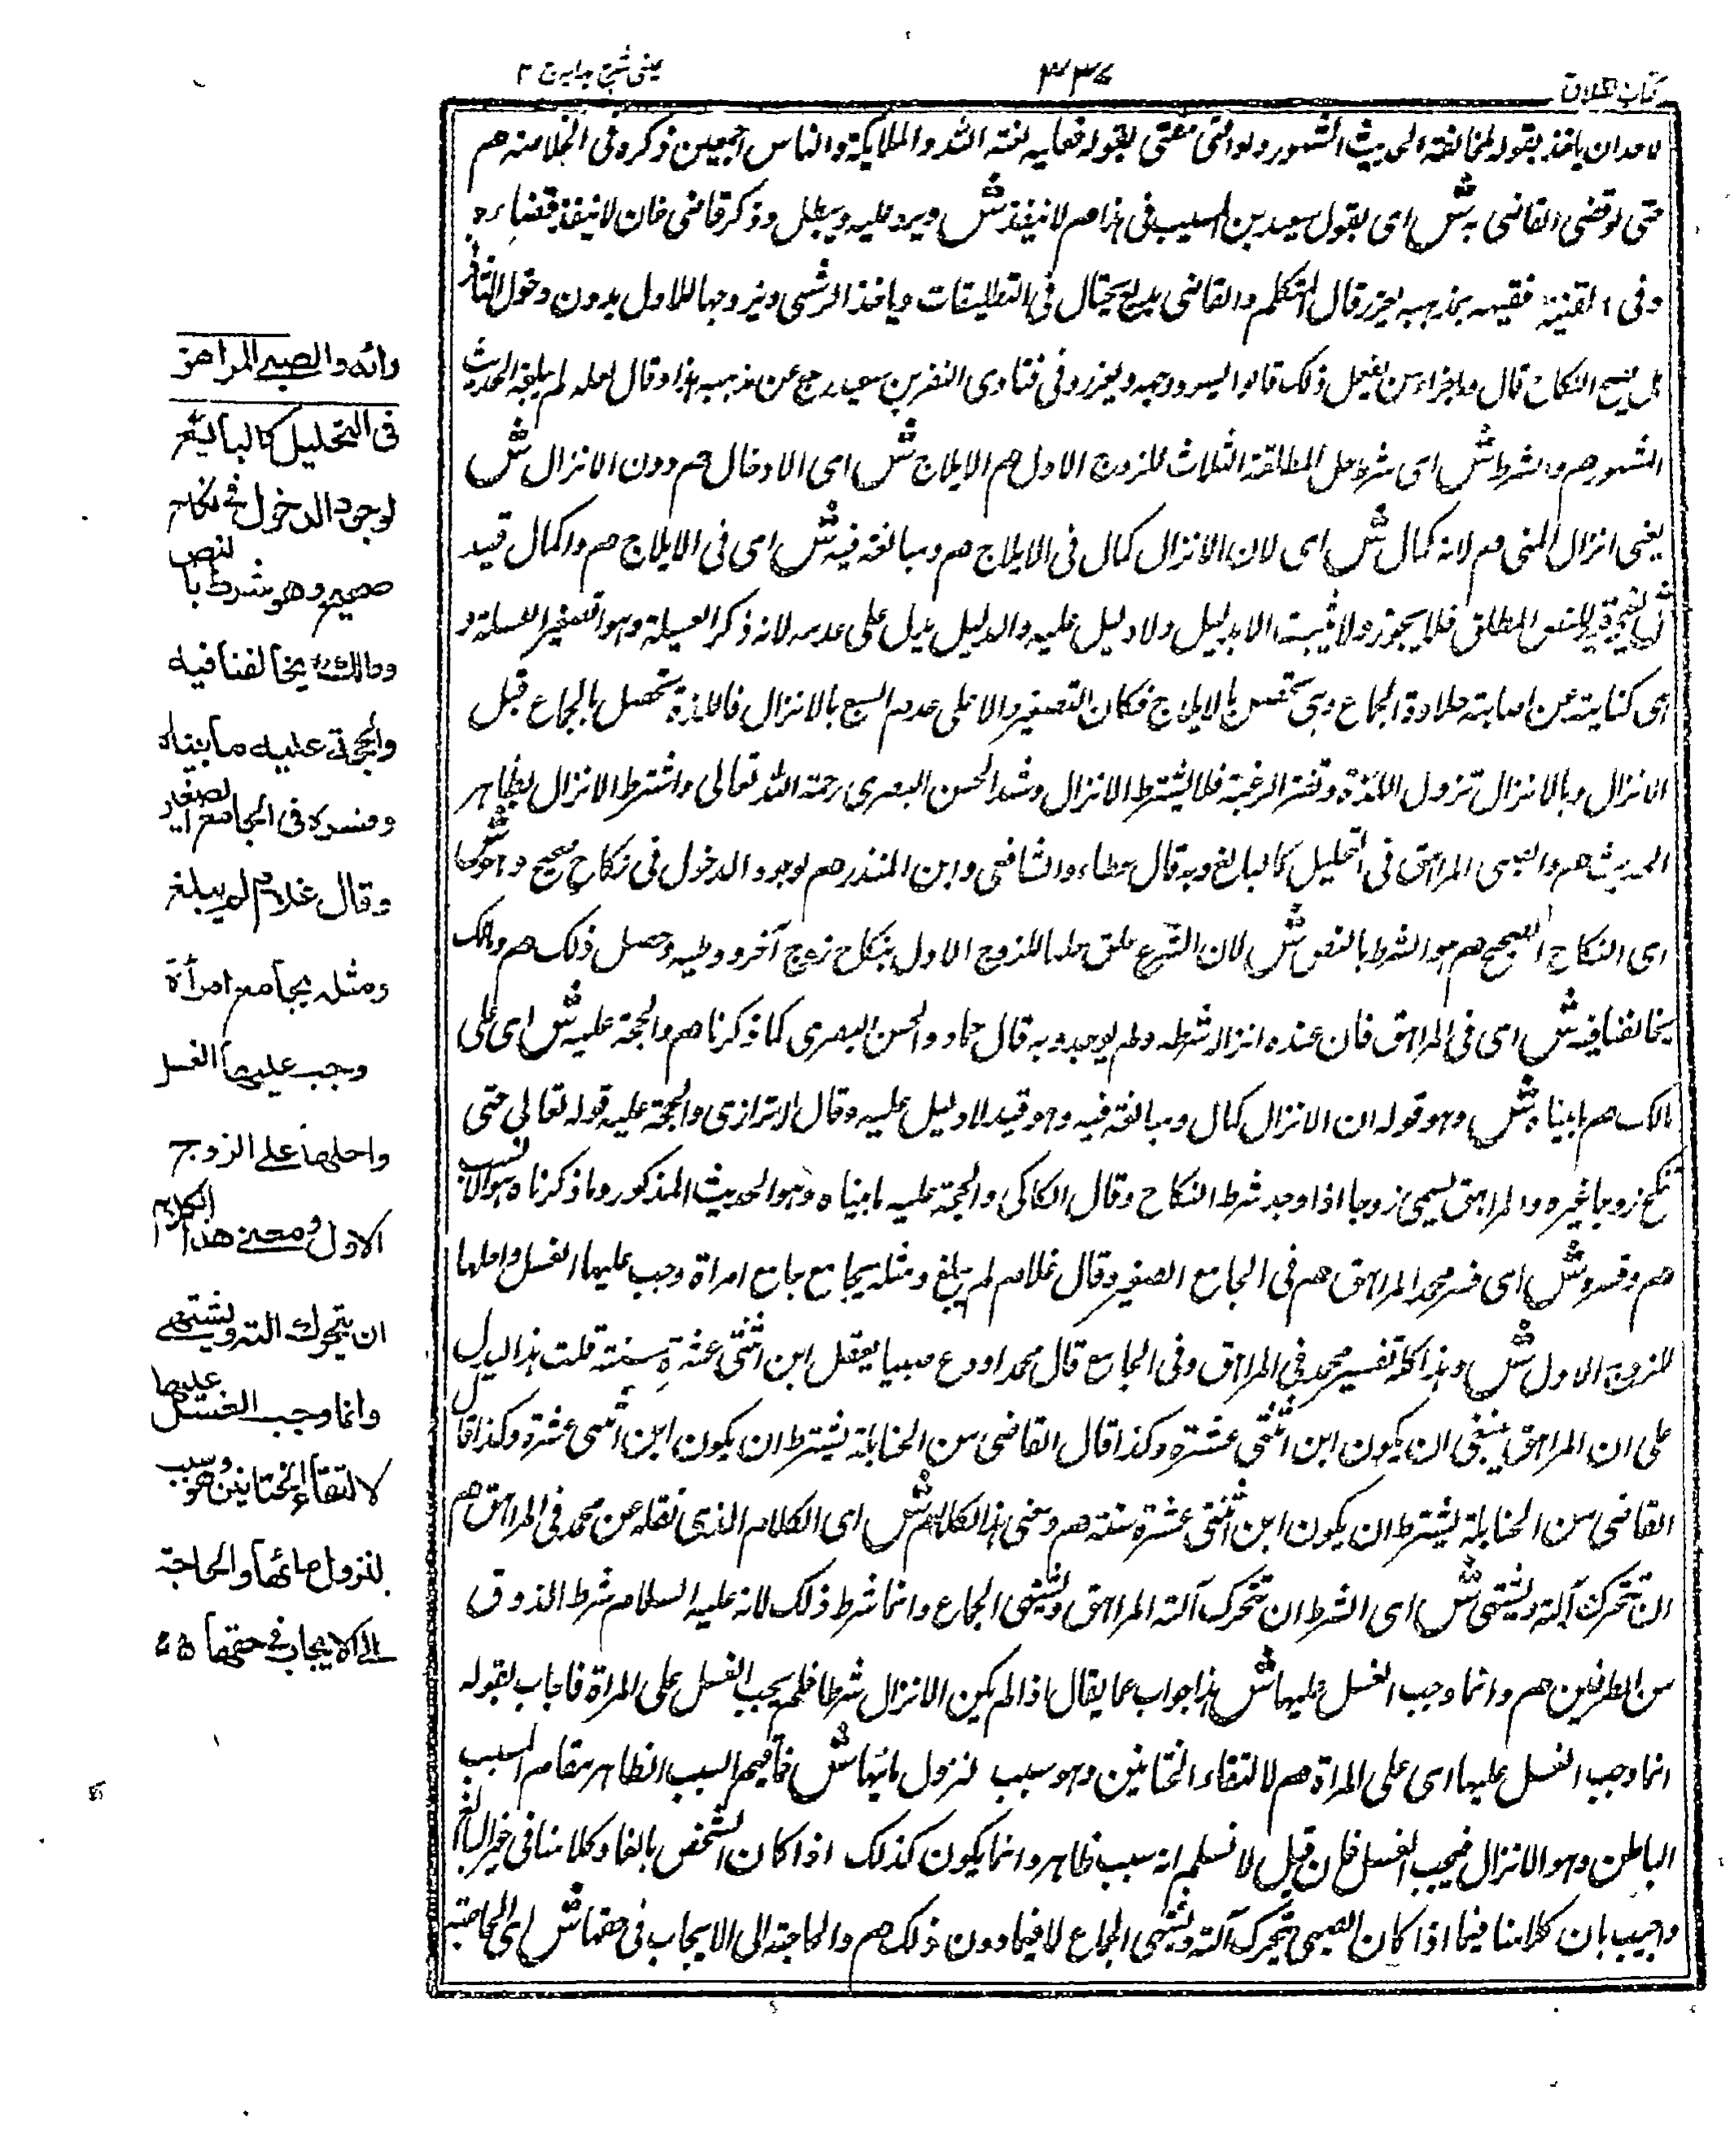 كتاب الطلاق
۳۳۷
عینی شرح ہدایہ ج ۲
لاحد ان یاخذ بقوله لمخالفة الحدیث المشهور ولو افتی مفتی بقوله فعلیه لعنة الله والملایکة والناس اجمعین ذکره فی الخلاصة هم
حتی لو قضی القاضی به ش ای بقول سعید بن المسیب فی هذا هم لا ینفذ ش ویرد علیه ویبطل وذکر قاضی خان لا ینفذ قضاءه
وفی القنیة فقیه بمذهبه یعزر قال المتکلم والقاضی بدیع یحتال فی التطلیقات ویاخذ الرشی ویزوجها للاول بدون دخول الثانی
هل یصح النکاح قال وما جزاء من یفعل ذلک قالوا یسود وجهه ویعزر وفی فتاوی النفر بن سعید رجع عن مذهبه هذا وقال لعله لم یبلغه الحدیث
المشهور هم والشرط ش ای شرط حل المطلقة الثلاث للزوج الاول هم الایلاج ش ای الادخال هم دون الانزال ش
یعنی انزال المنی هم لانه کمال ش ای لان الانزال کمال فی الایلاج هم ومبالغة فیه ش ای فی الایلاج هم والکمال قید
ش للنص المطلق فلا یجوز ولا یثبت الا بدلیل ولا دلیل علیه والدلیل یدل علی عدمه لانه ذکر العسیلة وهو تصغیر العسلة و
هی کنایة عن اصابة حلاوة الجماع وهی تحصل بالایلاج فکان التصغیر دالا علی عدم الشبع بالانزال فاللذة تحصل بالجماع قبل
الانزال وبالانزال تزول اللذة وتفتر الرغبة فلا یشترط الانزال وشذ الحسن البصری رحمة الله تعالی واشترط الانزال بظاهر
الحدیث هم والصبی المراهق فی التحلیل کالبالغ وبه قال عطاء والشافعی وابن المنذر هم لوجود الدخول فی نکاح صحیح وهو ش
ای النکاح الصحیح هم هو الشرط بالنص ش لان الشرع علق حلها للزوج الاول بنکاح زوج آخر ووطیه وحصل ذلک هم ومالک
یخالفنا فیه ش ای فی المراهق فان عنده انزال شرطه ولم یوجد وبه قال حماد والحسن البصری کما ذکرنا هم والحجة علیه ش ای علی
مالک هم ما بیناه ش وهو قوله ان الانزال کمال ومبالغة فیه وهو قید لا دلیل علیه وقال الاترازی والحجة علیه قوله تعالی حتی
تنکح زوجا غیره والمراهق یسمی زوجا اذا وجد شرط النکاح وقال الکاکی والحجة علیه ما بیناه وهو الحدیث المذکور وما ذکرناه هو الانسب
هم وفسره ش ای فسر محمد المراهق هم فی الجامع الصغیر وقال غلام لم یبلغ ومثله یجامع جامع امراة وجب علیها الغسل واحلها
للزوج الاول ش وهذا کله تفسیر محمد فی المراهق وفی الجامع قال محمد اودع صبیا یعقل ابن اثنتی عشرة سنة قلت هذا یدل
علی ان المراهق ینبغی ان یکون ابن اثنتی عشرة وکذا قال القاضی من الحنابلة یشترط ان یکون ابن اثنتی عشرة وکذا قال
القاضی من الحنابلة یشترط ان یکون ابن اثنتی عشرة سنة هم ومعنی هذا الکلام ش ای الکلام الذی نقله عن محمد فی المراهق هم
ان تتحرک آلته ویشتهی ش ای الشرط ان تتحرک آلته المراهق ویشتهی الجماع وانما شرط ذلک لانه علیه السلام شرط الذوق
من الطرفین هم وانما وجب الغسل علیها ش هذا جواب عما یقال اذا لم یکن الانزال شرطا فلم یجب الغسل علی المراة فاجاب بقوله
انما وجب الغسل علیها ای علی المراة هم لالتقاء الختانین وهو سبب لنزول مائها ش فاقیم السبب الظاهر مقام السبب
الباطن وهو الانزال فیجب الغسل فان قیل لا نسلم انه سبب ظاهر وانما یکون کذلک اذا کان الشخص بالغا وکلامنا فی غیر البالغ
واجیب بان کلامنا فیما اذا کان الصبی تتحرک آلته ویشتهی الجماع لا فیما دون ذلک هم والحاجة الی الایجاب فی حقها ش ای الحاجة
رأئه والصبی المراهق
فی التحلیل کالبالغ
لوجود الدخول فی نکاح
صحیح وهو شرط بالنص
ومالك یخالفنا فیه
والحجة علیه ما بیناه
وفسره فی الجامع الصغیر
وقال غلام لم یبلغ
ومثله یجامع امرأة
وجب علیها الغسل
واحلها علی الزوج
الاول ومعنی هذا الکلام
ان یتحرك آلته ویشتهی
وانما وجب الغسل علیها
لالتقاء الختانین وهو سبب
لنزول مائها والحاجة
الی الایجاب فی حقها